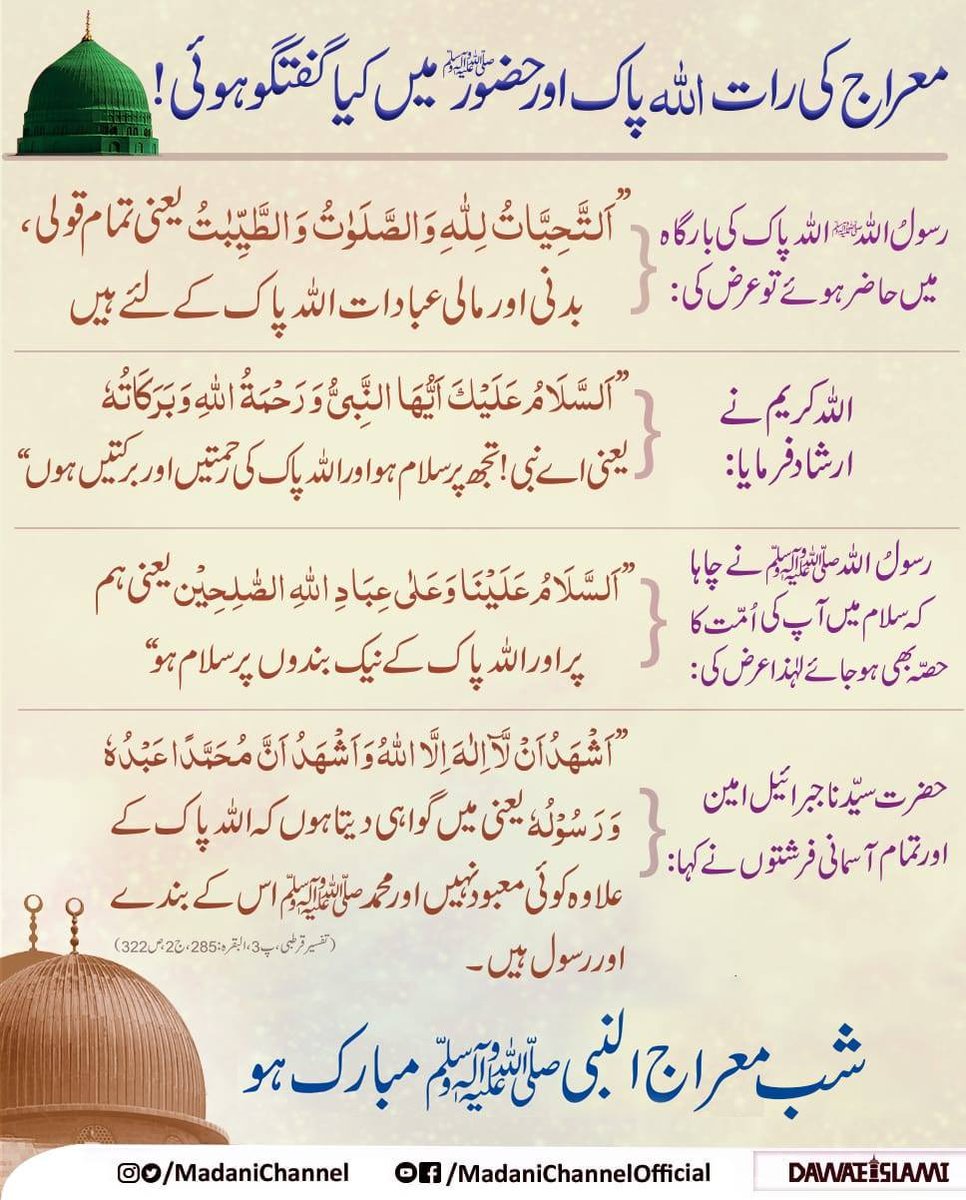 معراج کی رات اللہ پاک اور حضور ﷺ میں کیا گفتگو ہوئی!
رسولُ اللہ ﷺ اللہ پاک کی بارگاہ
میں حاضر ہوئے تو عرض کی:
”اَلتَّحِیَّاتُ لِلّٰہِ وَالصَّلَوٰتُ وَالطَّیِّبٰتُ یعنی تمام قولی،
بدنی اور مالی عبادات اللہ پاک کے لئے ہیں
اللہ کریم نے
ارشاد فرمایا:
”اَلسَّلَامُ عَلَیْكَ اَیُّهَا النَّبِیُّ وَرَحْمَۃُ اللہِ وَبَرَکَاتُہٗ
یعنی اے نبی! تجھ پر سلام ہو اور اللہ پاک کی رحمتیں اور برکتیں ہوں“
رسولُ اللہ ﷺ نے چاہا
کہ سلام میں آپ کی اُمّت کا
حصّہ بھی ہو جائے لہٰذا عرض کی:
”اَلسَّلَامُ عَلَیْنَا وَعَلٰی عِبَادِ اللہِ الصّٰلِحِیْن یعنی ہم
پر اور اللہ پاک کے نیک بندوں پر سلام ہو“
حضرت سیّدنا جبرائیل امین
اور تمام آسمانی فرشتوں نے کہا:
”اَشْهَدُ اَنْ لَّاۤ اِلٰہَ اِلَّا اللہُ وَاَشْهَدُ اَنَّ مُحَمَّدًا عَبْدُہٗ
وَرَسُوْلُہٗ یعنی میں گواہی دیتا ہوں کہ اللہ پاک کے
علاوہ کوئی معبود نہیں اور محمد ﷺ اس کے بندے
اور رسول ہیں۔
(تفسیر قرطبی، پ3، البقرہ: 285، ج2، ص322)
شب معراج النبی ﷺ مبارک ہو
/MadaniChannel
/MadaniChannelOfficial
DAWATEISLAMI